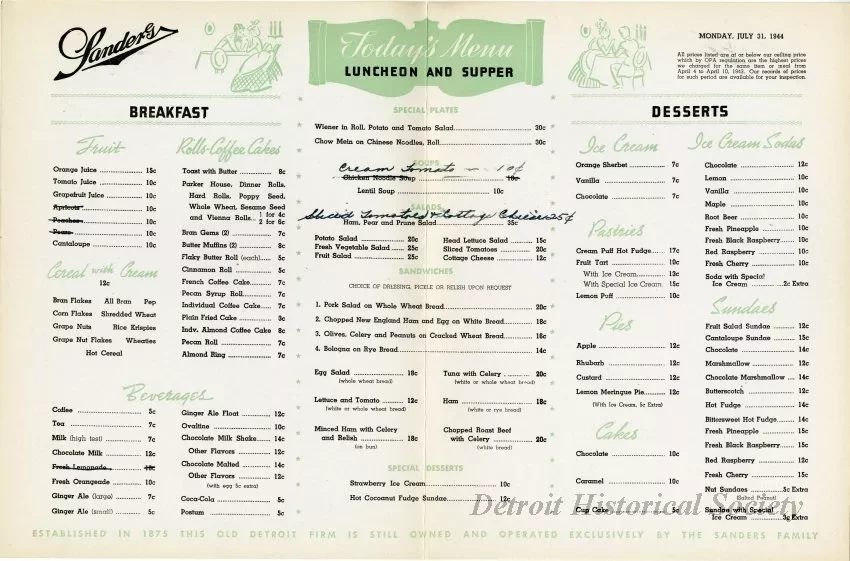 Sanders
Today's Menu
LUNCHEON AND SUPPER
MONDAY, JULY 31, 1944
All prices listed are at or below our ceiling price
which by OPA regulation are the highest prices
we charged for the same item or meal from
April 4 to April 10, 1943. Our records of prices
for such period are available for your inspection.
BREAKFAST
Fruit
Orange Juice 15c
Tomato Juice 10c
Grapefruit Juice 10c
Apricots 10c
Peaches 10c
Pears 10c
Cantaloupe 10c
Cereal with Cream
12c
Bran Flakes All Bran Pep
Corn Flakes Shredded Wheat
Grape Nuts Rice Krispies
Grape Nut Flakes Wheaties
Hot Cereal
Rolls-Coffee Cakes
Toast with Butter 8c
Parker House, Dinner Rolls,
Hard Rolls, Poppy Seed,
Whole Wheat, Sesame Seed
and Vienna Rolls 1 for 4c
2 for 6c
Bran Gems (2) 7c
Butter Muffins (2) 8c
Flaky Butter Roll (each) 5c
Cinnamon Roll 5c
French Coffee Cake 7c
Pecan Syrup Roll 7c
Individual Coffee Cake 7c
Plain Fried Cake 3c
Indv. Almond Coffee Cake 8c
Pecan Roll 7c
Almond Ring 7c
Beverages
Coffee 5c
Tea 7c
Milk (high test) 7c
Chocolate Milk 12c
Fresh Lemonade 10c
Fresh Orangeade 10c
Ginger Ale (large) 7c
Ginger Ale (small) 5c
Ginger Ale Float 12c
Ovaltine 10c
Chocolate Milk Shake 14c
Other Flavors 12c
Chocolate Malted 14c
Other Flavors 12c
(with egg 5c extra)
Coca-Cola 5c
Postum 5c
SPECIAL PLATES
Wiener in Roll, Potato and Tomato Salad 30c
Chow Mein on Chinese Noodles, Roll 30c
SOUPS
Cream Tomato 10¢
Chicken Noodle Soup 10c
Lentil Soup 10c
SALADS
Sliced Tomatoes & Cottage Cheese 25¢
Ham, Pear and Prune Salad 35c
Potato Salad 20c
Fresh Vegetable Salad 25c
Fruit Salad 25c
Head Lettuce Salad 15c
Sliced Tomatoes 20c
Cottage Cheese 12c
SANDWICHES
CHOICE OF DRESSING, PICKLE OR RELISH UPON REQUEST
1. Pork Salad on Whole Wheat Bread 20c
2. Chopped New England Ham and Egg on White Bread 18c
3. Olives, Celery and Peanuts on Cracked Wheat Bread 16c
4. Bologna on Rye Bread 14c
Egg Salad 18c
(whole wheat bread)
Lettuce and Tomato 12c
(white or whole wheat bread)
Minced Ham with Celery
and Relish 18c
(on bun)
Tuna with Celery 20c
(white or whole wheat bread)
Ham 18c
(white or rye bread)
Chopped Roast Beef
with Celery 20c
(white bread)
SPECIAL DESSERTS
Strawberry Ice Cream 10c
Hot Cocoanut Fudge Sundae 12c
DESSERTS
Ice Cream
Orange Sherbet 7c
Vanilla 7c
Chocolate 7c
Pastries
Cream Puff Hot Fudge 17c
Fruit Tart 10c
With Ice Cream 13c
With Special Ice Cream 15c
Lemon Puff 10c
Pies
Apple 12c
Rhubarb 12c
Custard 12c
Lemon Meringue Pie 12c
(With Ice Cream, 5c Extra)
Cakes
Chocolate 10c
Caramel 10c
Cup Cake 5c
Ice Cream Sodas
Chocolate 12c
Lemon 10c
Vanilla 10c
Maple 10c
Root Beer 10c
Fresh Pineapple 10c
Fresh Black Raspberry 10c
Red Raspberry 10c
Fresh Cherry 10c
Soda with Special
Ice Cream 2c Extra
Sundaes
Fruit Salad Sundae 12c
Cantaloupe Sundae 15c
Chocolate 14c
Marshmallow 12c
Chocolate Marshmallow 14c
Butterscotch 12c
Hot Fudge 14c
Bittersweet Hot Fudge 14c
Fresh Pineapple 15c
Fresh Black Raspberry 15c
Red Raspberry 12c
Fresh Cherry 15c
Nut Sundaes 5c Extra
(Salted Pecans)
Sundae with Special
Ice Cream 3c Extra
Detroit Historical Society
ESTABLISHED IN 1875 THIS OLD DETROIT FIRM IS STILL OWNED AND OPERATED EXCLUSIVELY BY THE SANDERS FAMILY